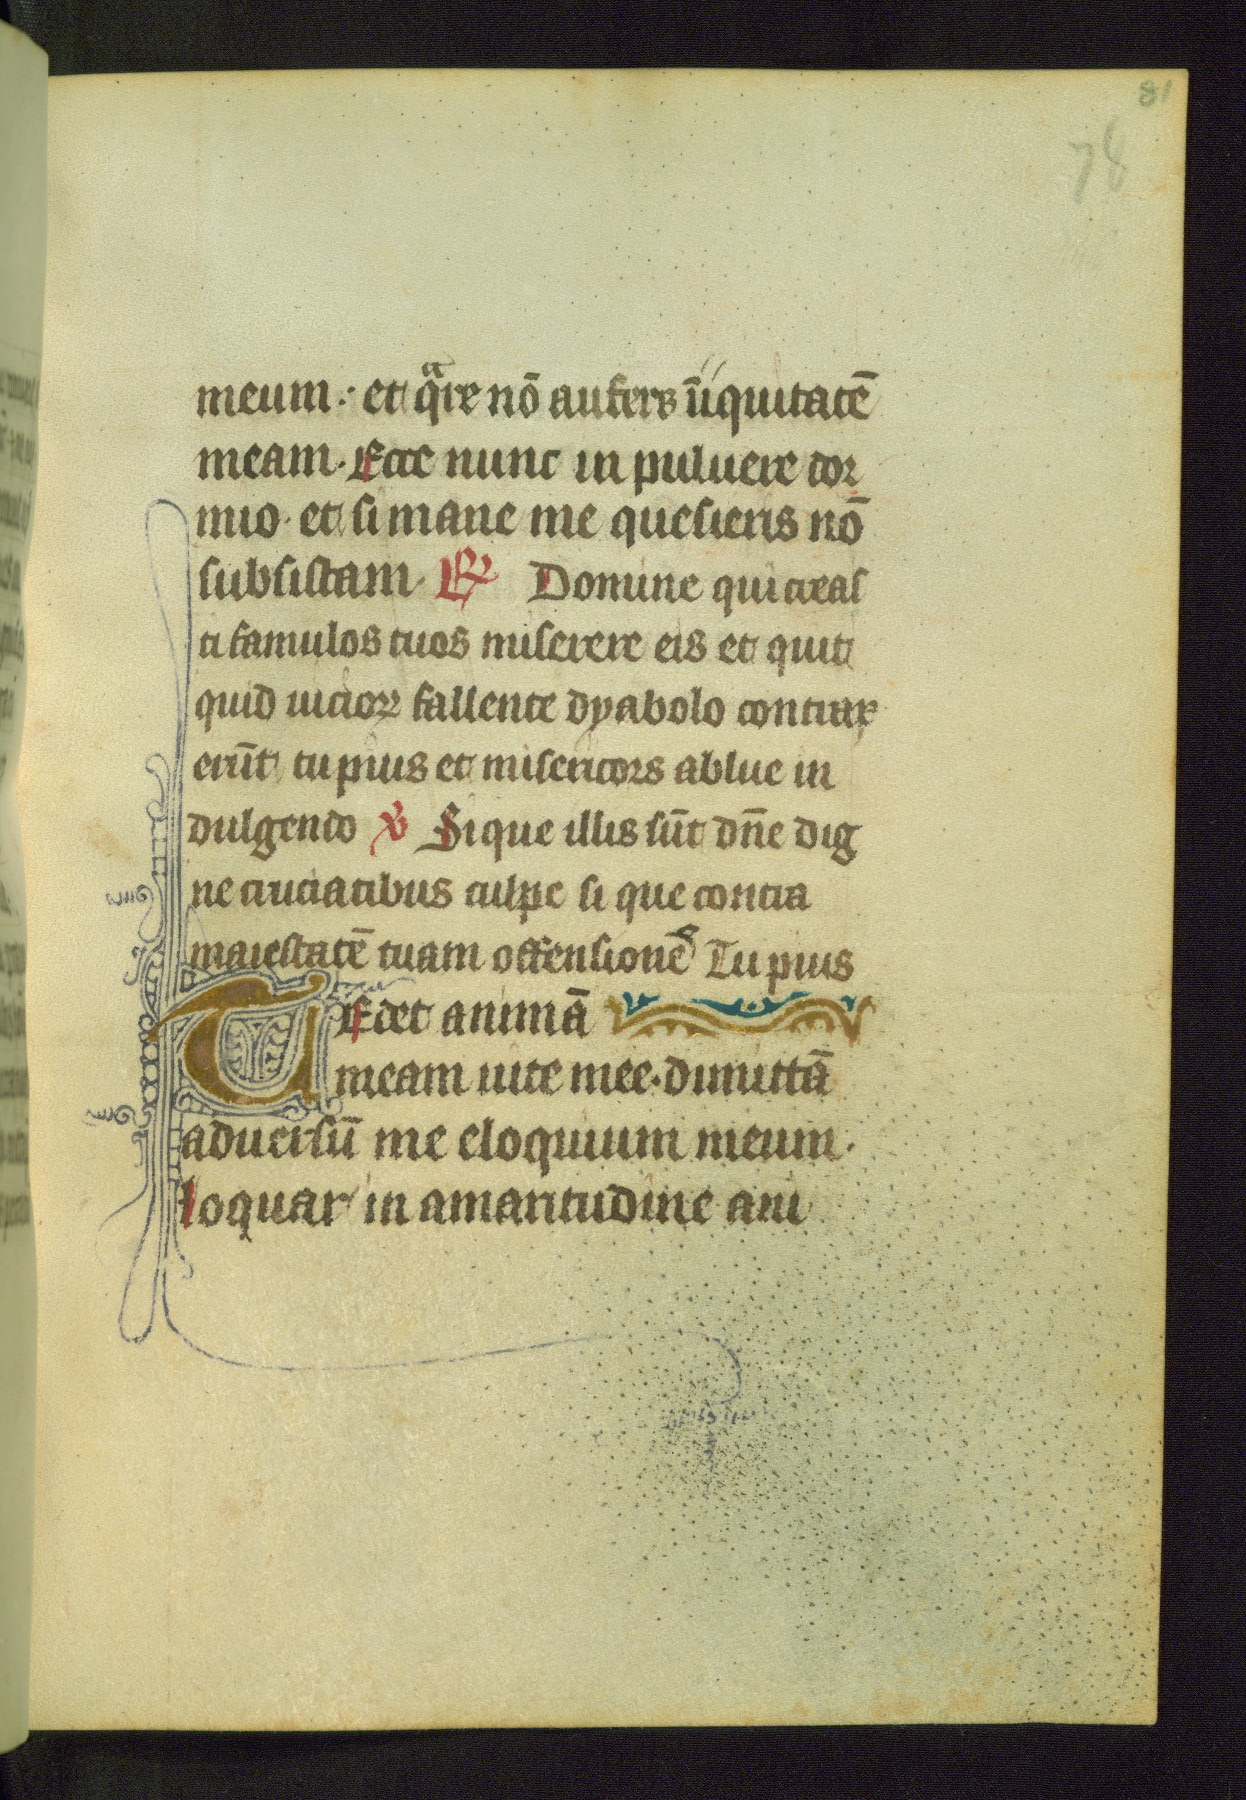 81
78
meum · et qᵃre nō aufers īīquitatē
meam · Ecce nunc in puluere dor
mio · et si mane me quesieris nō
subsistam · ℟ Domine qui creas
ti famulos tuos miserere eis et quit
quid uicioꝝ fallente dyabolo contrax
erūt tu pius et misericors ablue in
dulgendo ℣ Si que illis sūt dn̄e dig
ne cruciatibus culpe si que contra
maiestatē tuam offensionē Tu pius
TEdet animā
meam uite mee · dimittā
aduersū me eloquium meum ·
loquar in amaritudine ani